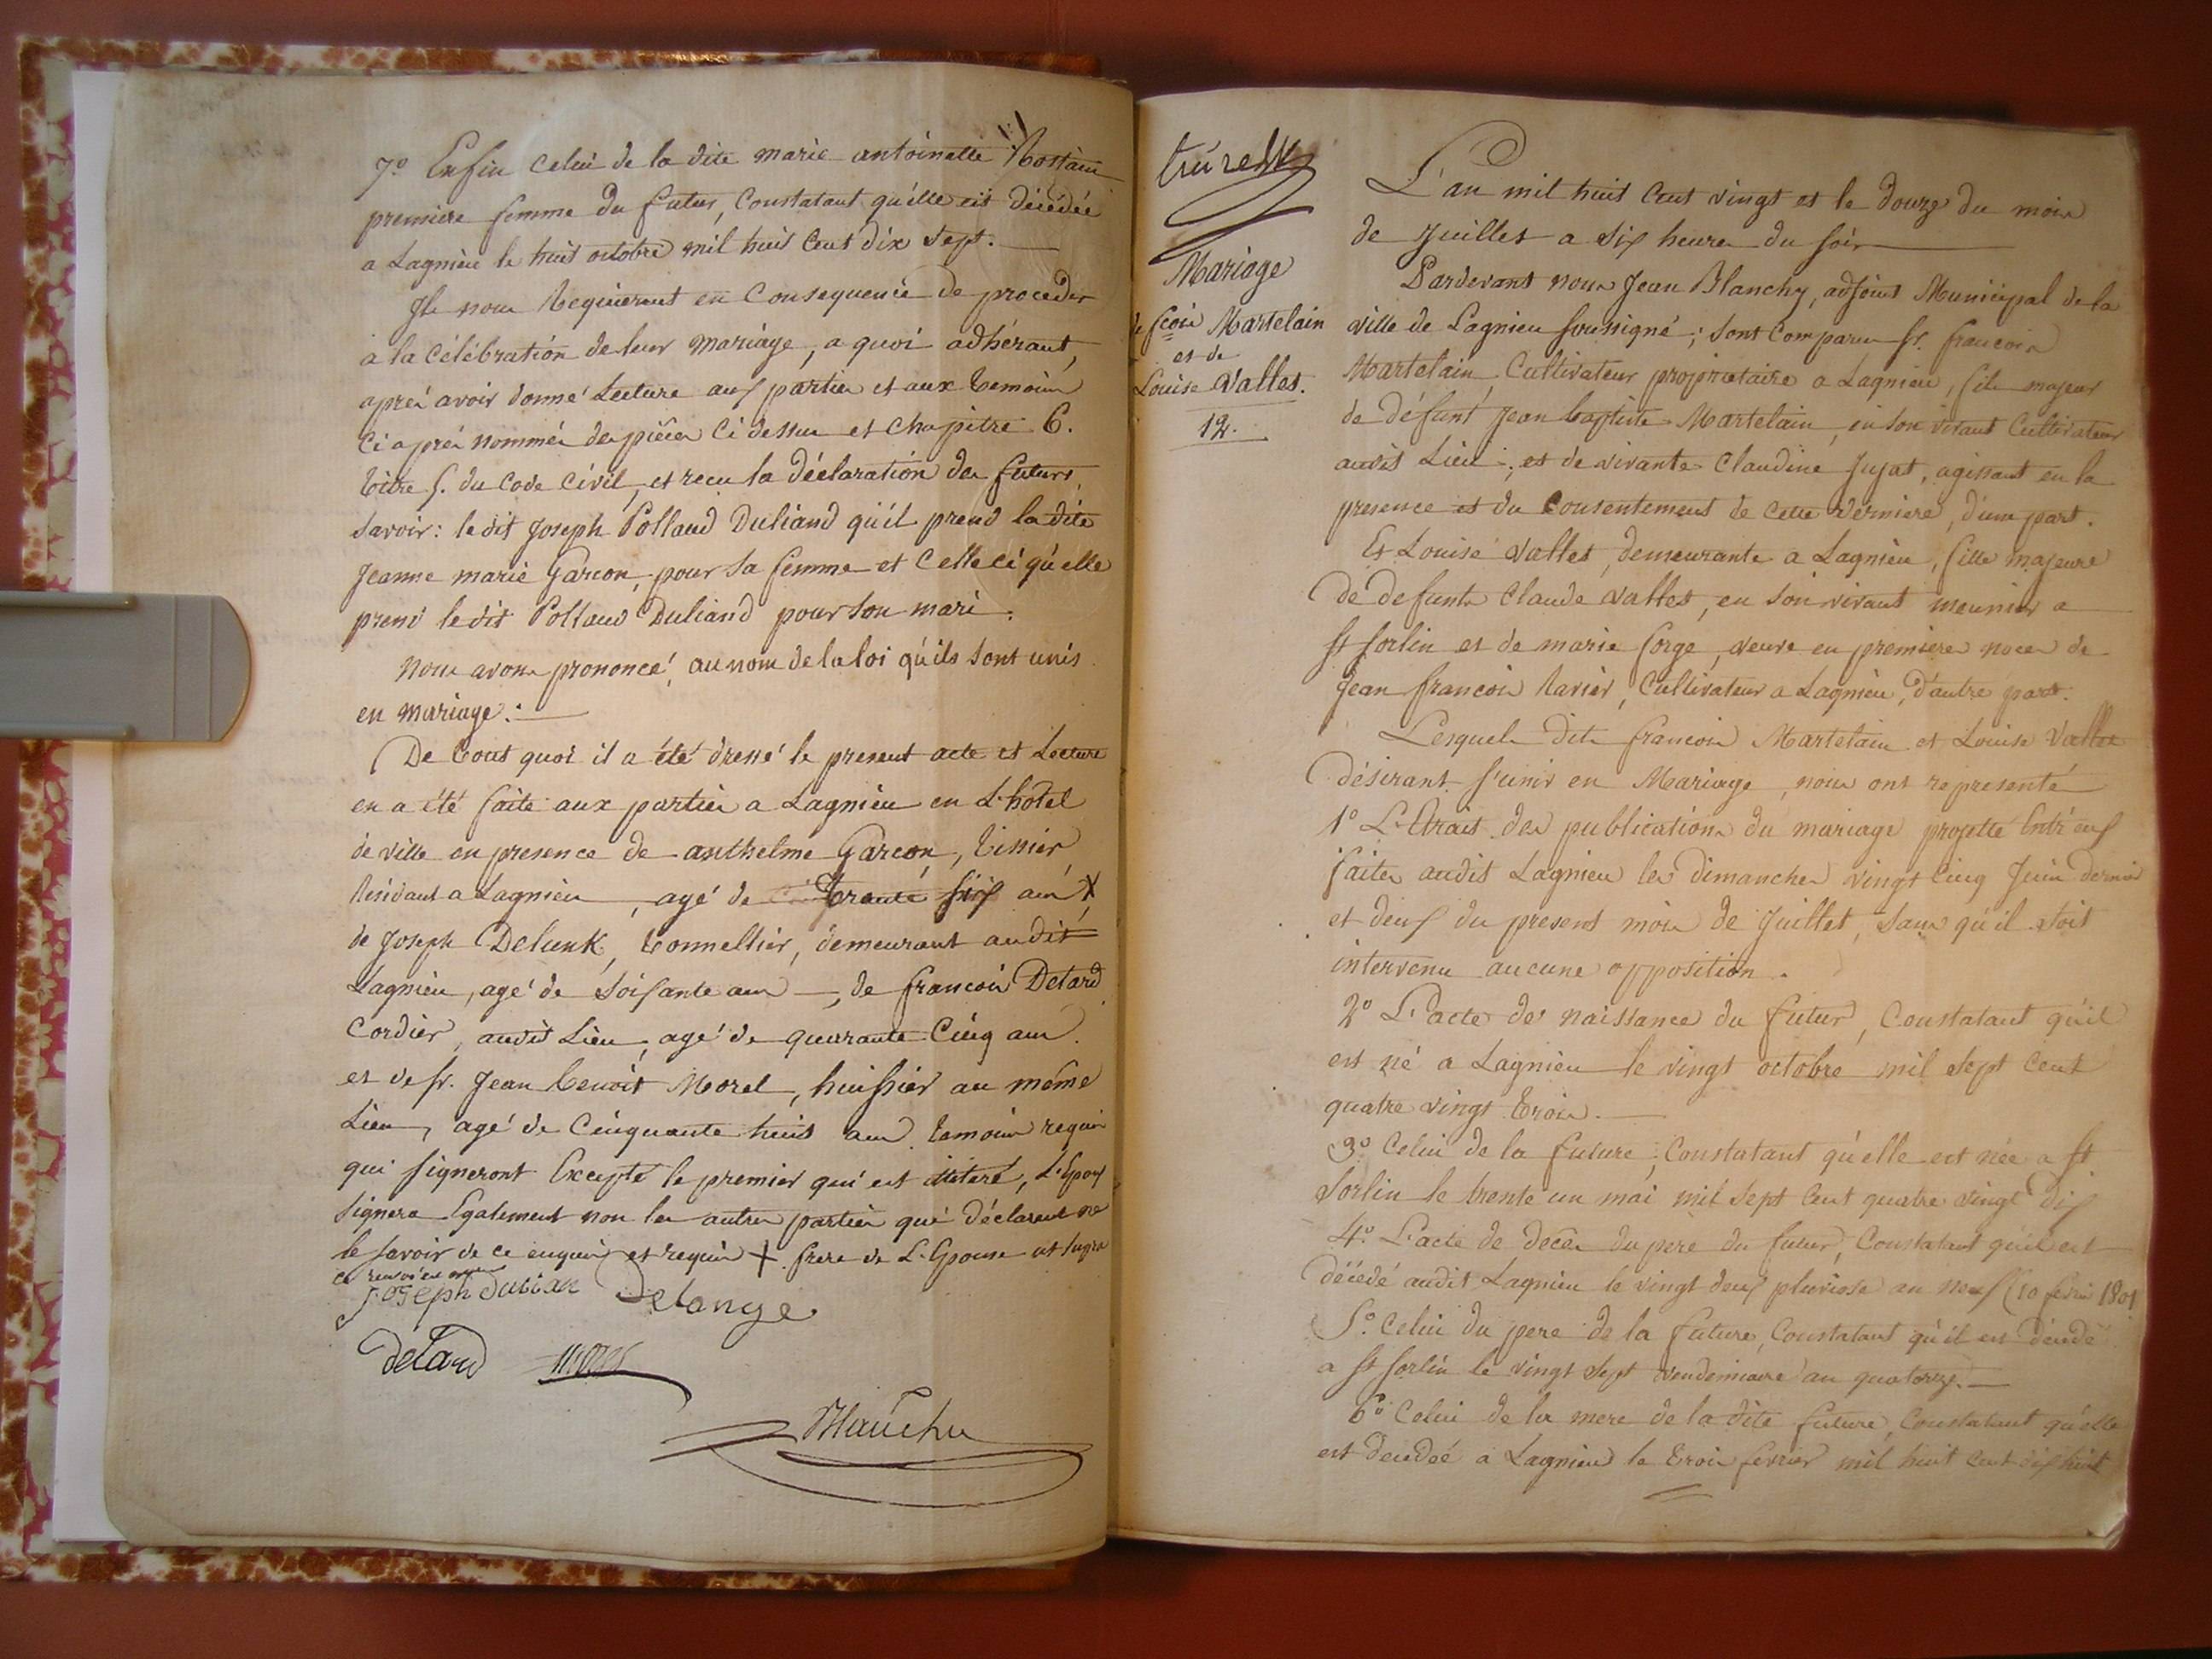 7.° Enfin celui de la dite marie antoinette Rostain
premiere femme du futur, Constatant qu'elle est décédée
a Lagnieu le huit octobre mil huit Cent dix Sept.
Ils nous Requierent en Consequence de proceder
a la Célébration de leur mariage, a quoi adhérant,
après avoir donné Lecture aux parties et aux temoins
Ci après nommés des pièces Ci dessus et Chapitre 6.
titre 5. du Code Civil, et recu la déclaration des futurs,
Savoir: le dit Joseph Pollaud Duliand qu'il prend la dite
Jeanne marie Garcon, pour sa femme et Celle ci qu'elle
prend le dit Pollaud Duliand pour Son mari.
nous avons prononcé, au nom de la loi qu'ils Sont unis
en mariage.
De tout quoi il a été dressé le present acte et Lecture
en a été faite aux parties a Lagnieu en L'hotel
de ville en presence de anthelme Garcon, tissier
Résidant a Lagnieu, agé de trente six ans X,
de Joseph Delunk, tonnellier, demeurant audit
Lagnieu, agé de Soixante ans, de francois Detard
Cordier, audit Lieu, agé de quarante Cinq ans.
et de sr. Jean benoit Morel, huissier au même
Lieu, agé de Cinquante huit ans temoins requis
qui signeront Excepté le premier qui est illiteré, L'Epoux
Signera Egalement non les autres parties qui déclarent ne
le savoir de ce enquis et requis X frere de L'Epouse
Joseph duliand Delange
détard morel
Blanchy
Mariage
de fcois Martelain
et de
Louise Vallet.
12.
L'an mil huit Cent vingt et le douze du mois
de Juillet a Six heures du soir
Pardevant nous Jean Blanchy, adjoint Municipal de la
ville de Lagnieu soussigné; Sont Comparus sr. francois
Martelain, Cultivateur propriétaire a Lagnieu, fils majeur
de défunt Jean baptiste Martelain, en Son vivant Cultivateur
audit Lieu; et de vivante Claudine Jujat, agissant en la
presence et du Consentement de Cette derniere, d'une part.
Et Louise Vallet, demeurante a Lagnieu, fille majeure
de defunts Claude Vallet, en Son vivant meunier a
St Sorlin et de marie forge, veuve en premieres noces de
Jean francois Ravier, Cultivateur a Lagnieu, d'autre part.
Lesquels dits francois Martelain et Louise Vallet
désirant s'unir en Mariage, nous ont representé
1.° L'Extrait des publications du mariage projetté Entr'eux
faites audit Lagnieu les Dimanches vingt Cinq Juin dernier
et deux du present mois de Juillet, Sans qu'il Soit
intervenu aucune opposition.
2.° L'acte de naissance du futur, Constatant qu'il
est né a Lagnieu le vingt octobre mil Sept Cent
quatre vingt trois.
3.° Celui de la future, Constatant qu'elle est née a St
Sorlin le trente un mai mil Sept Cent quatre vingt dix
4.° L'acte de décès du pere du futur, Constatant qu'il est
décédé audit Lagnieu le vingt deux pluviose an neuf (10 fevrier 1801
5.° Celui du pere de la future, Constatant qu'il est décédé
a St Sorlin le vingt Sept vendemiaire an quatorze.
6.° Celui de la mere de la dite future, Constatant qu'elle
est décédée a Lagnieu le trois fevrier mil huit Cent dix huit